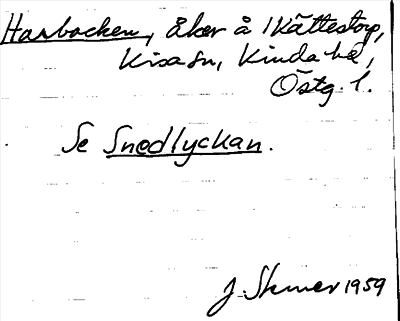 Harbacken, åker å Kättestorp,
Kisa sn, Kinda hd,
Östg. l.
Se Snedlyckan.
J. Skener 1959